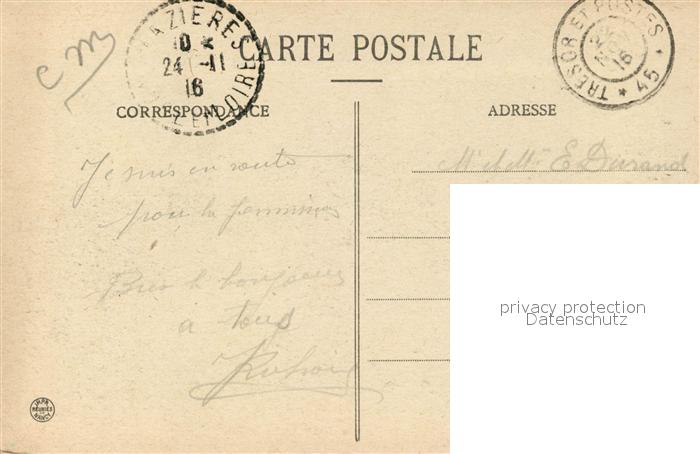 CM
AZIERES
10 *
24 -11
16
EN LOIRE
CARTE POSTALE
TRESOR ET POSTES * 45 *
16
CORRESPONDANCE
ADRESSE
Je suis en route
pour la
Bien le bonjour
a tous
E Durand
privacy protection
Datenschutz
IMP. REUNIES
NANCY